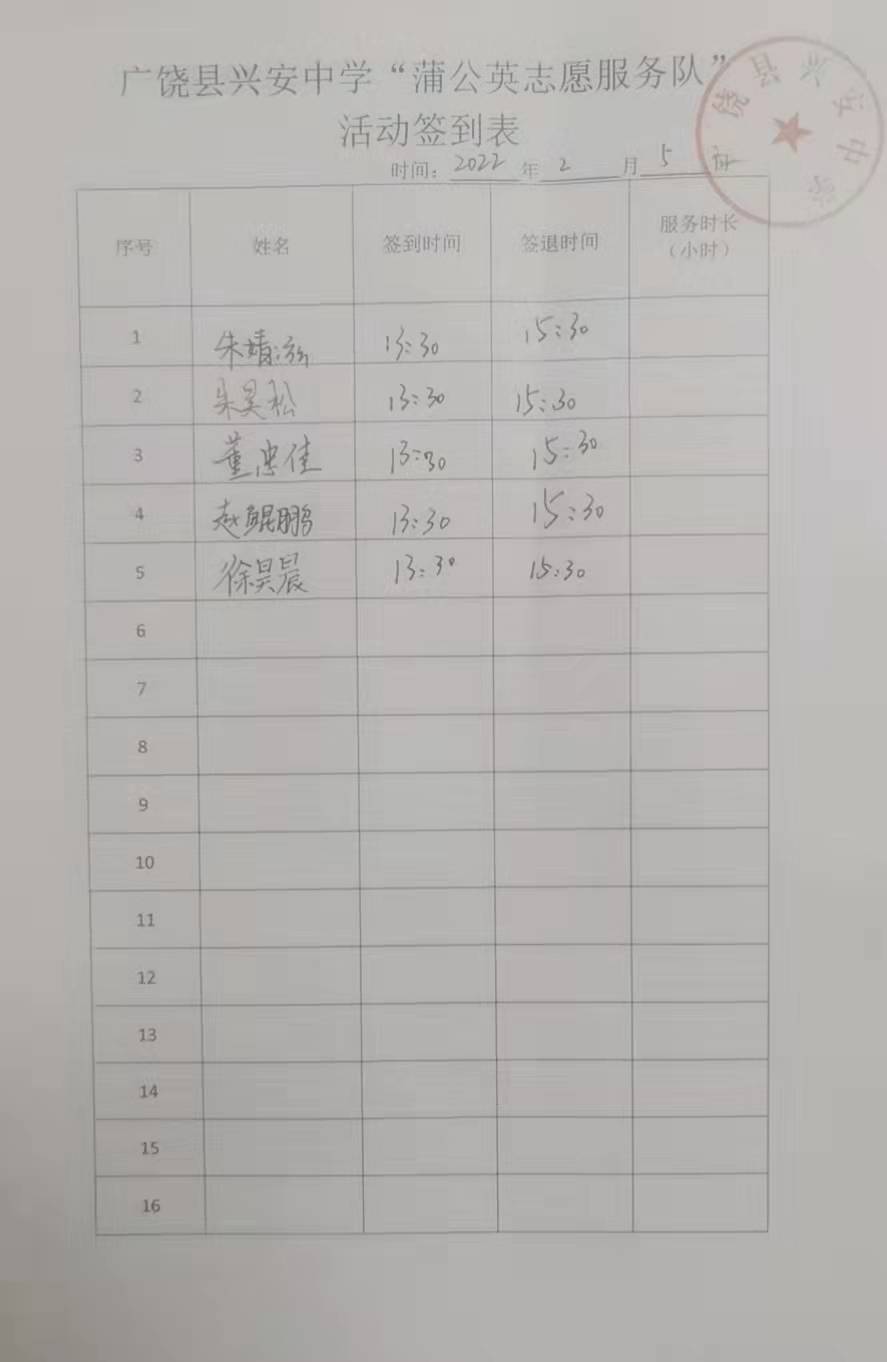 广饶县兴安中学“蒲公英志愿服务队”
活动签到表
时间：2022年2月5日
广饶县兴安中学
序号 姓名 签到时间 签退时间 服务时长（小时）
1 朱婧 13:30 15:30
2 朱昊松 13:30 15:30
3 董忠佳 13:30 15:30
4 赵鲲鹏 13:30 15:30
5 徐昊晨 13:30 15:30
6
7
8
9
10
11
12
13
14
15
16